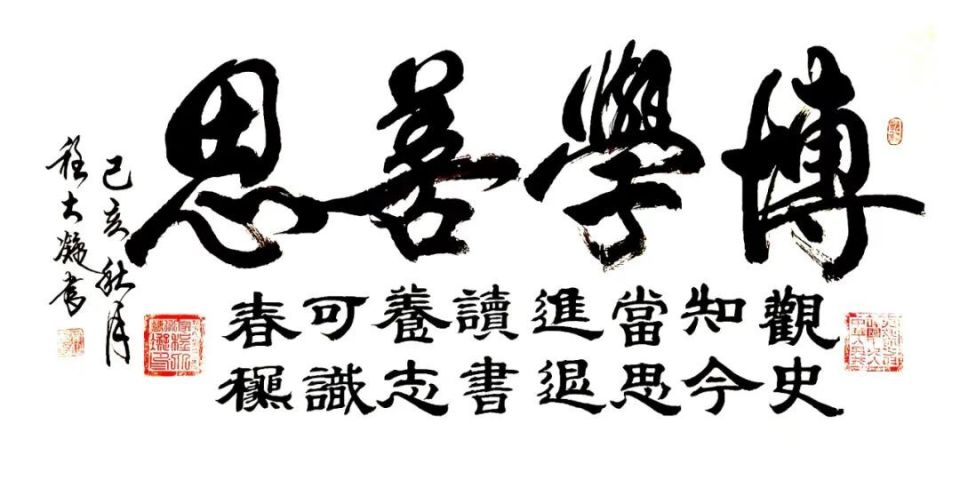 博學善思
觀史
知今
當思
進退
讀書
養志
可識
春龝
己亥秋月
程大凝書